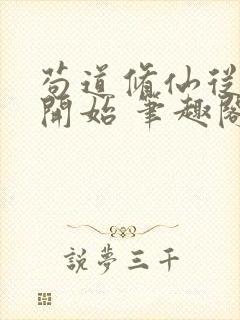 苟道脩仙從
開始 筆趣閣
說夢三千